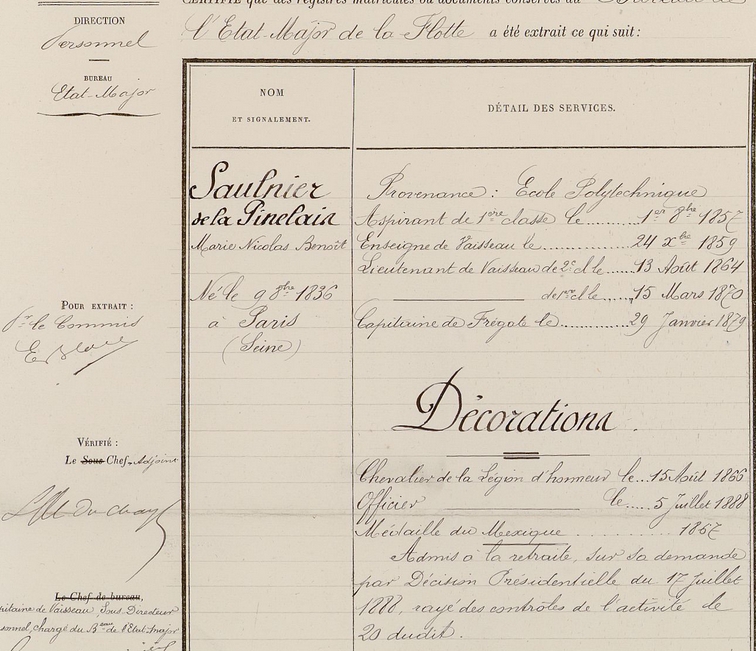 CERTIFIE que des registres matricules ou documents conservés au Bureau de
l'Etat-Major de la Flotte a été extrait ce qui suit :
DIRECTION
Personnel
BUREAU
Etat-Major
NOM
ET SIGNALEMENT.
DÉTAIL DES SERVICES.
Saulnier
de la Pinelais
Marie Nicolas Benoît
Né le 9 8bre 1836
à Paris
(Seine)
Provenance : Ecole Polytechnique
Aspirant de 1ère classe le 1er 8bre 1857
Enseigne de Vaisseau le 24 Xbre 1859
Lieutenant de Vaisseau de 2e cl le 13 Août 1864
de 1re cl le 15 Mars 1870
Capitaine de Frégate le 29 Janvier 1879
Décorations.
Chevalier de la Légion d'honneur le 15 Août 1866
Officier le 5 Juillet 1888
Médaille du Mexique 1867
Admis à la retraite, sur sa demande
par Décision Présidentielle du 17 Juillet
1888, rayé des contrôles de l'activité le
20 dudit.
POUR EXTRAIT :
Pr le Commis
VÉRIFIÉ :
Le Sous Chef Adjoint
Le Chef de bureau,
Capitaine de Vaisseau, Sous-Directeur
chargé du Beau de l'Etat-Major